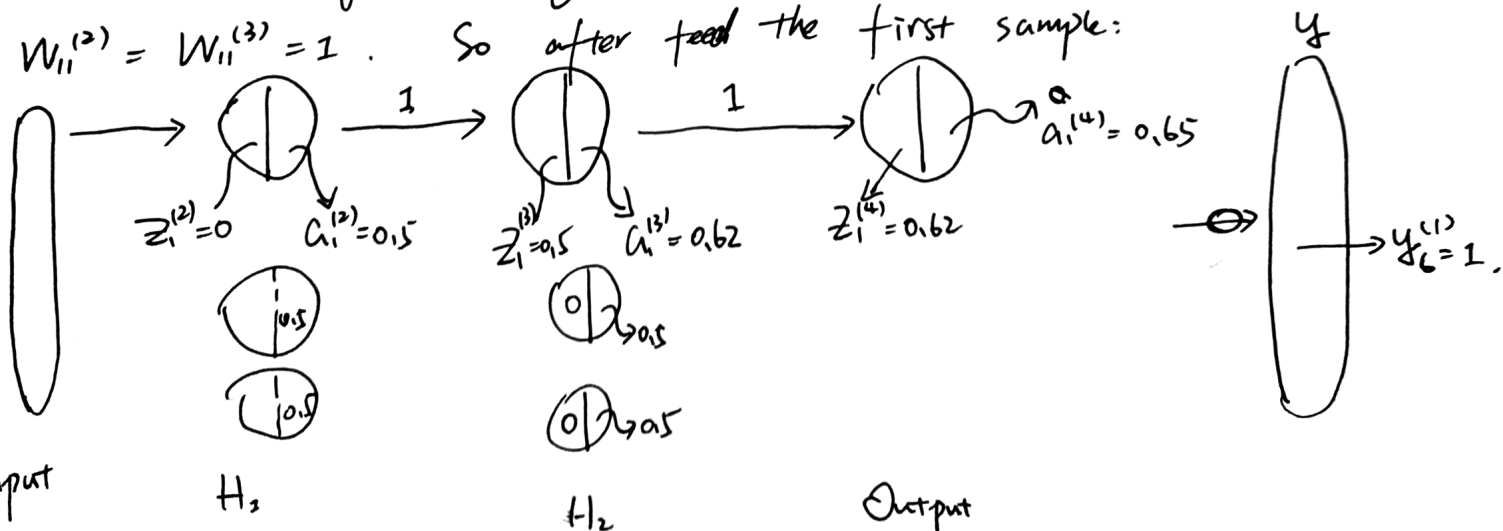 W₁₁⁽²⁾ = W₁₁⁽³⁾ = 1 . So after feed the first sample:
y
1
1
a
a₁⁽⁴⁾ = 0.65
Z₁⁽²⁾ = 0
a₁⁽²⁾ = 0.5
Z₁⁽³⁾ = 0.5
a₁⁽³⁾ = 0.62
Z₁⁽⁴⁾ = 0.62
y₆⁽¹⁾ = 1 .
0.5
0
0.5
0.5
0
0.5
put
H₂
Output